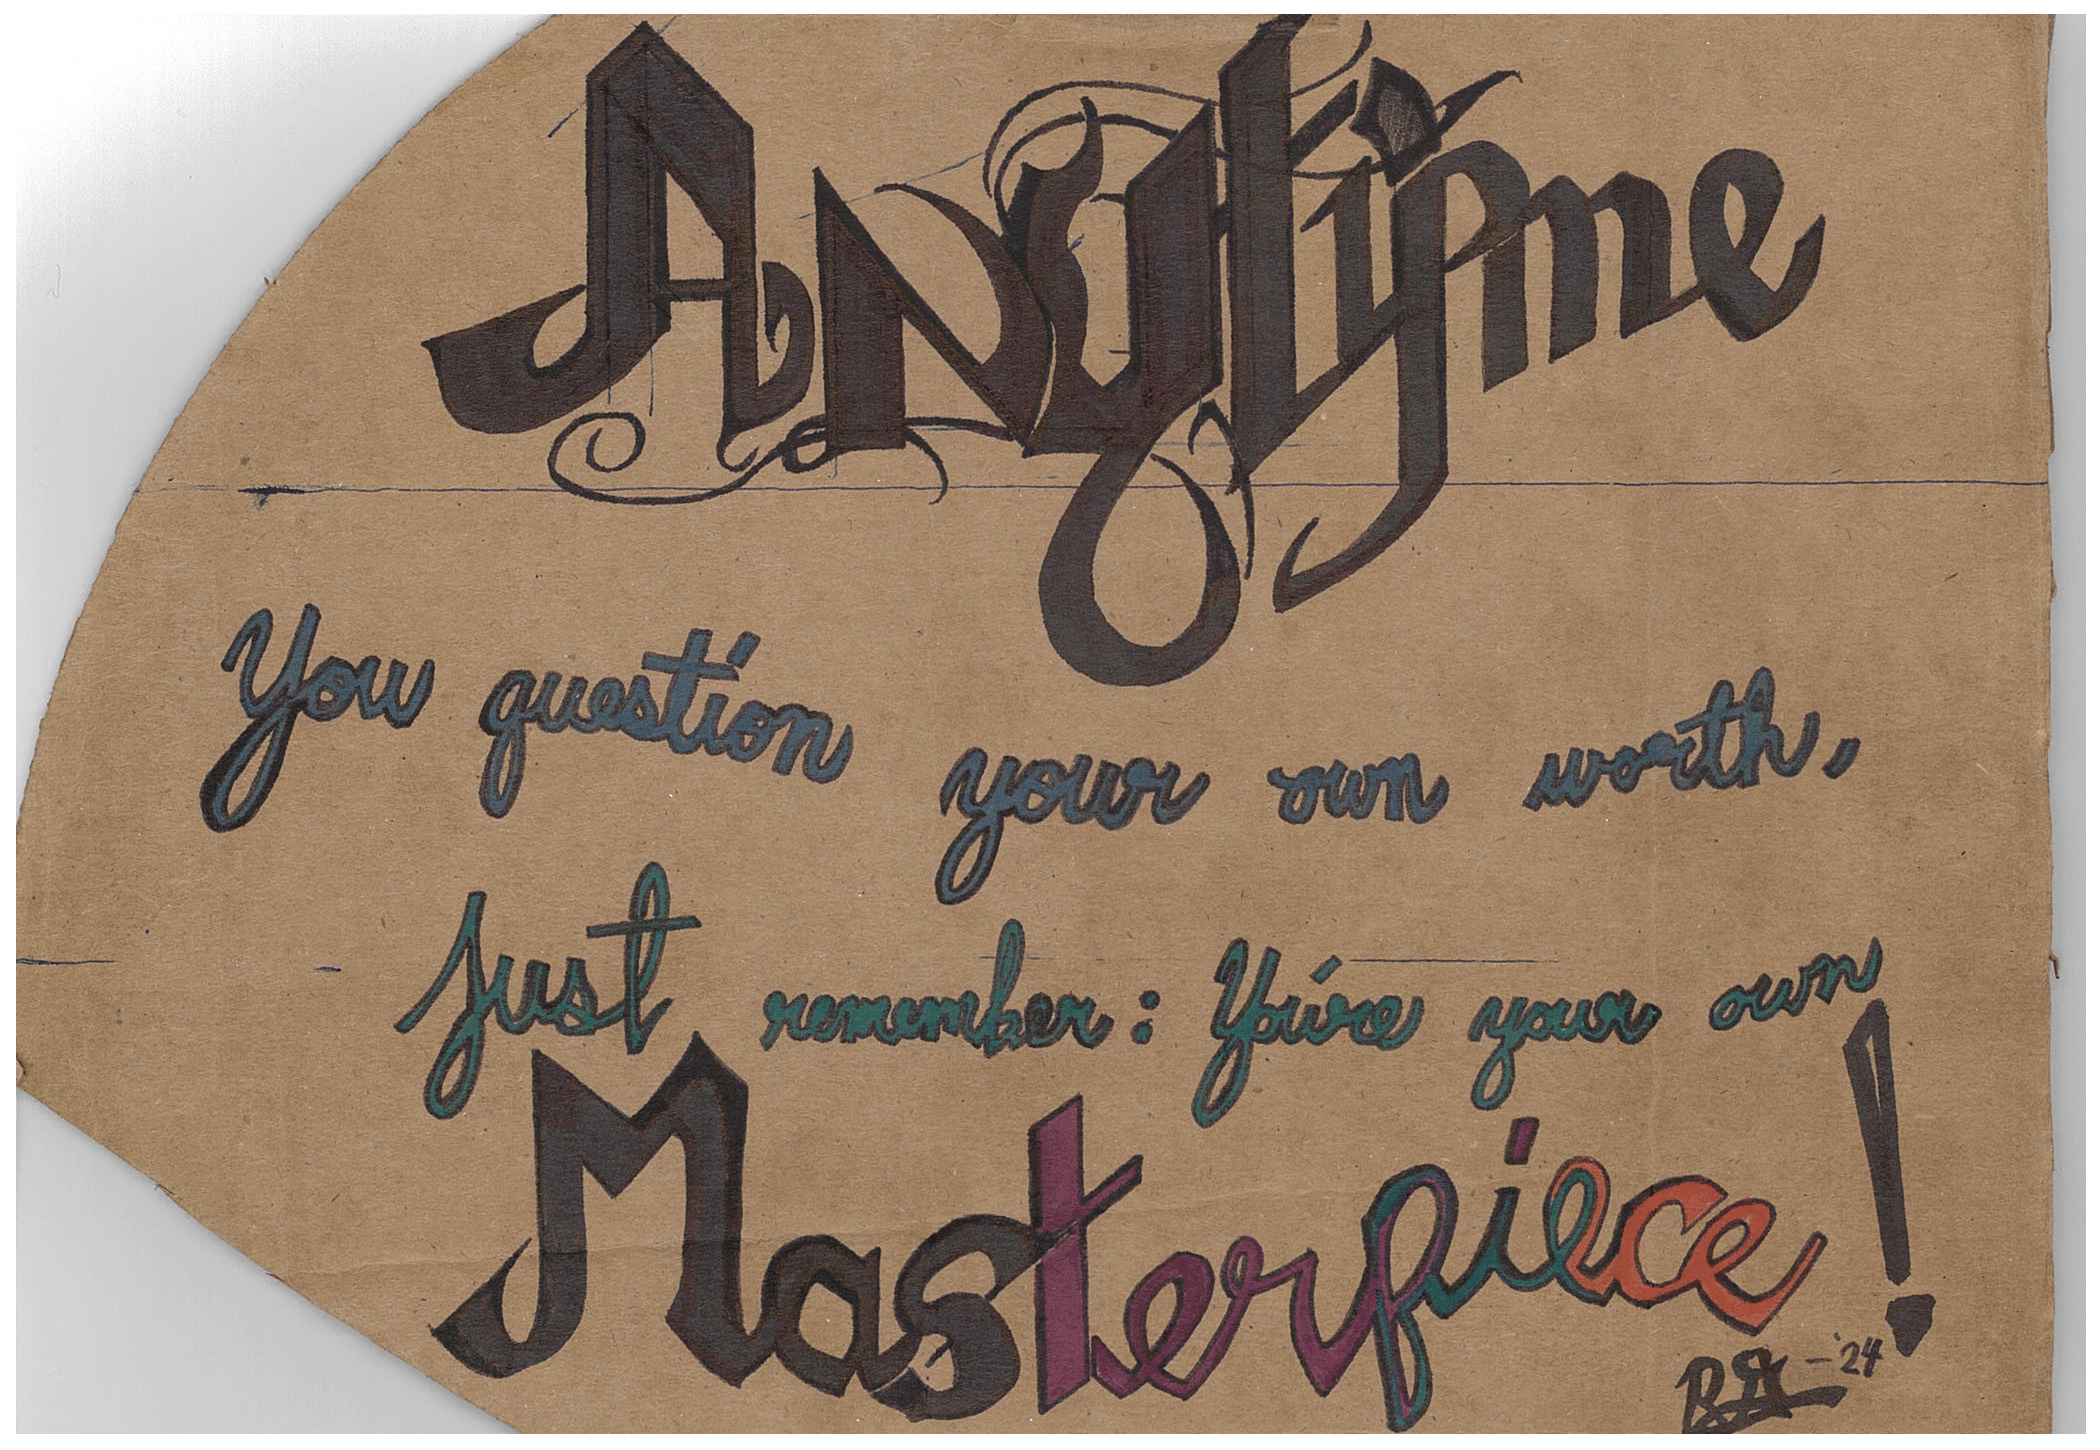 Anytime
You question your own worth,
just remember: You're your own
Masterpiece!
-'24